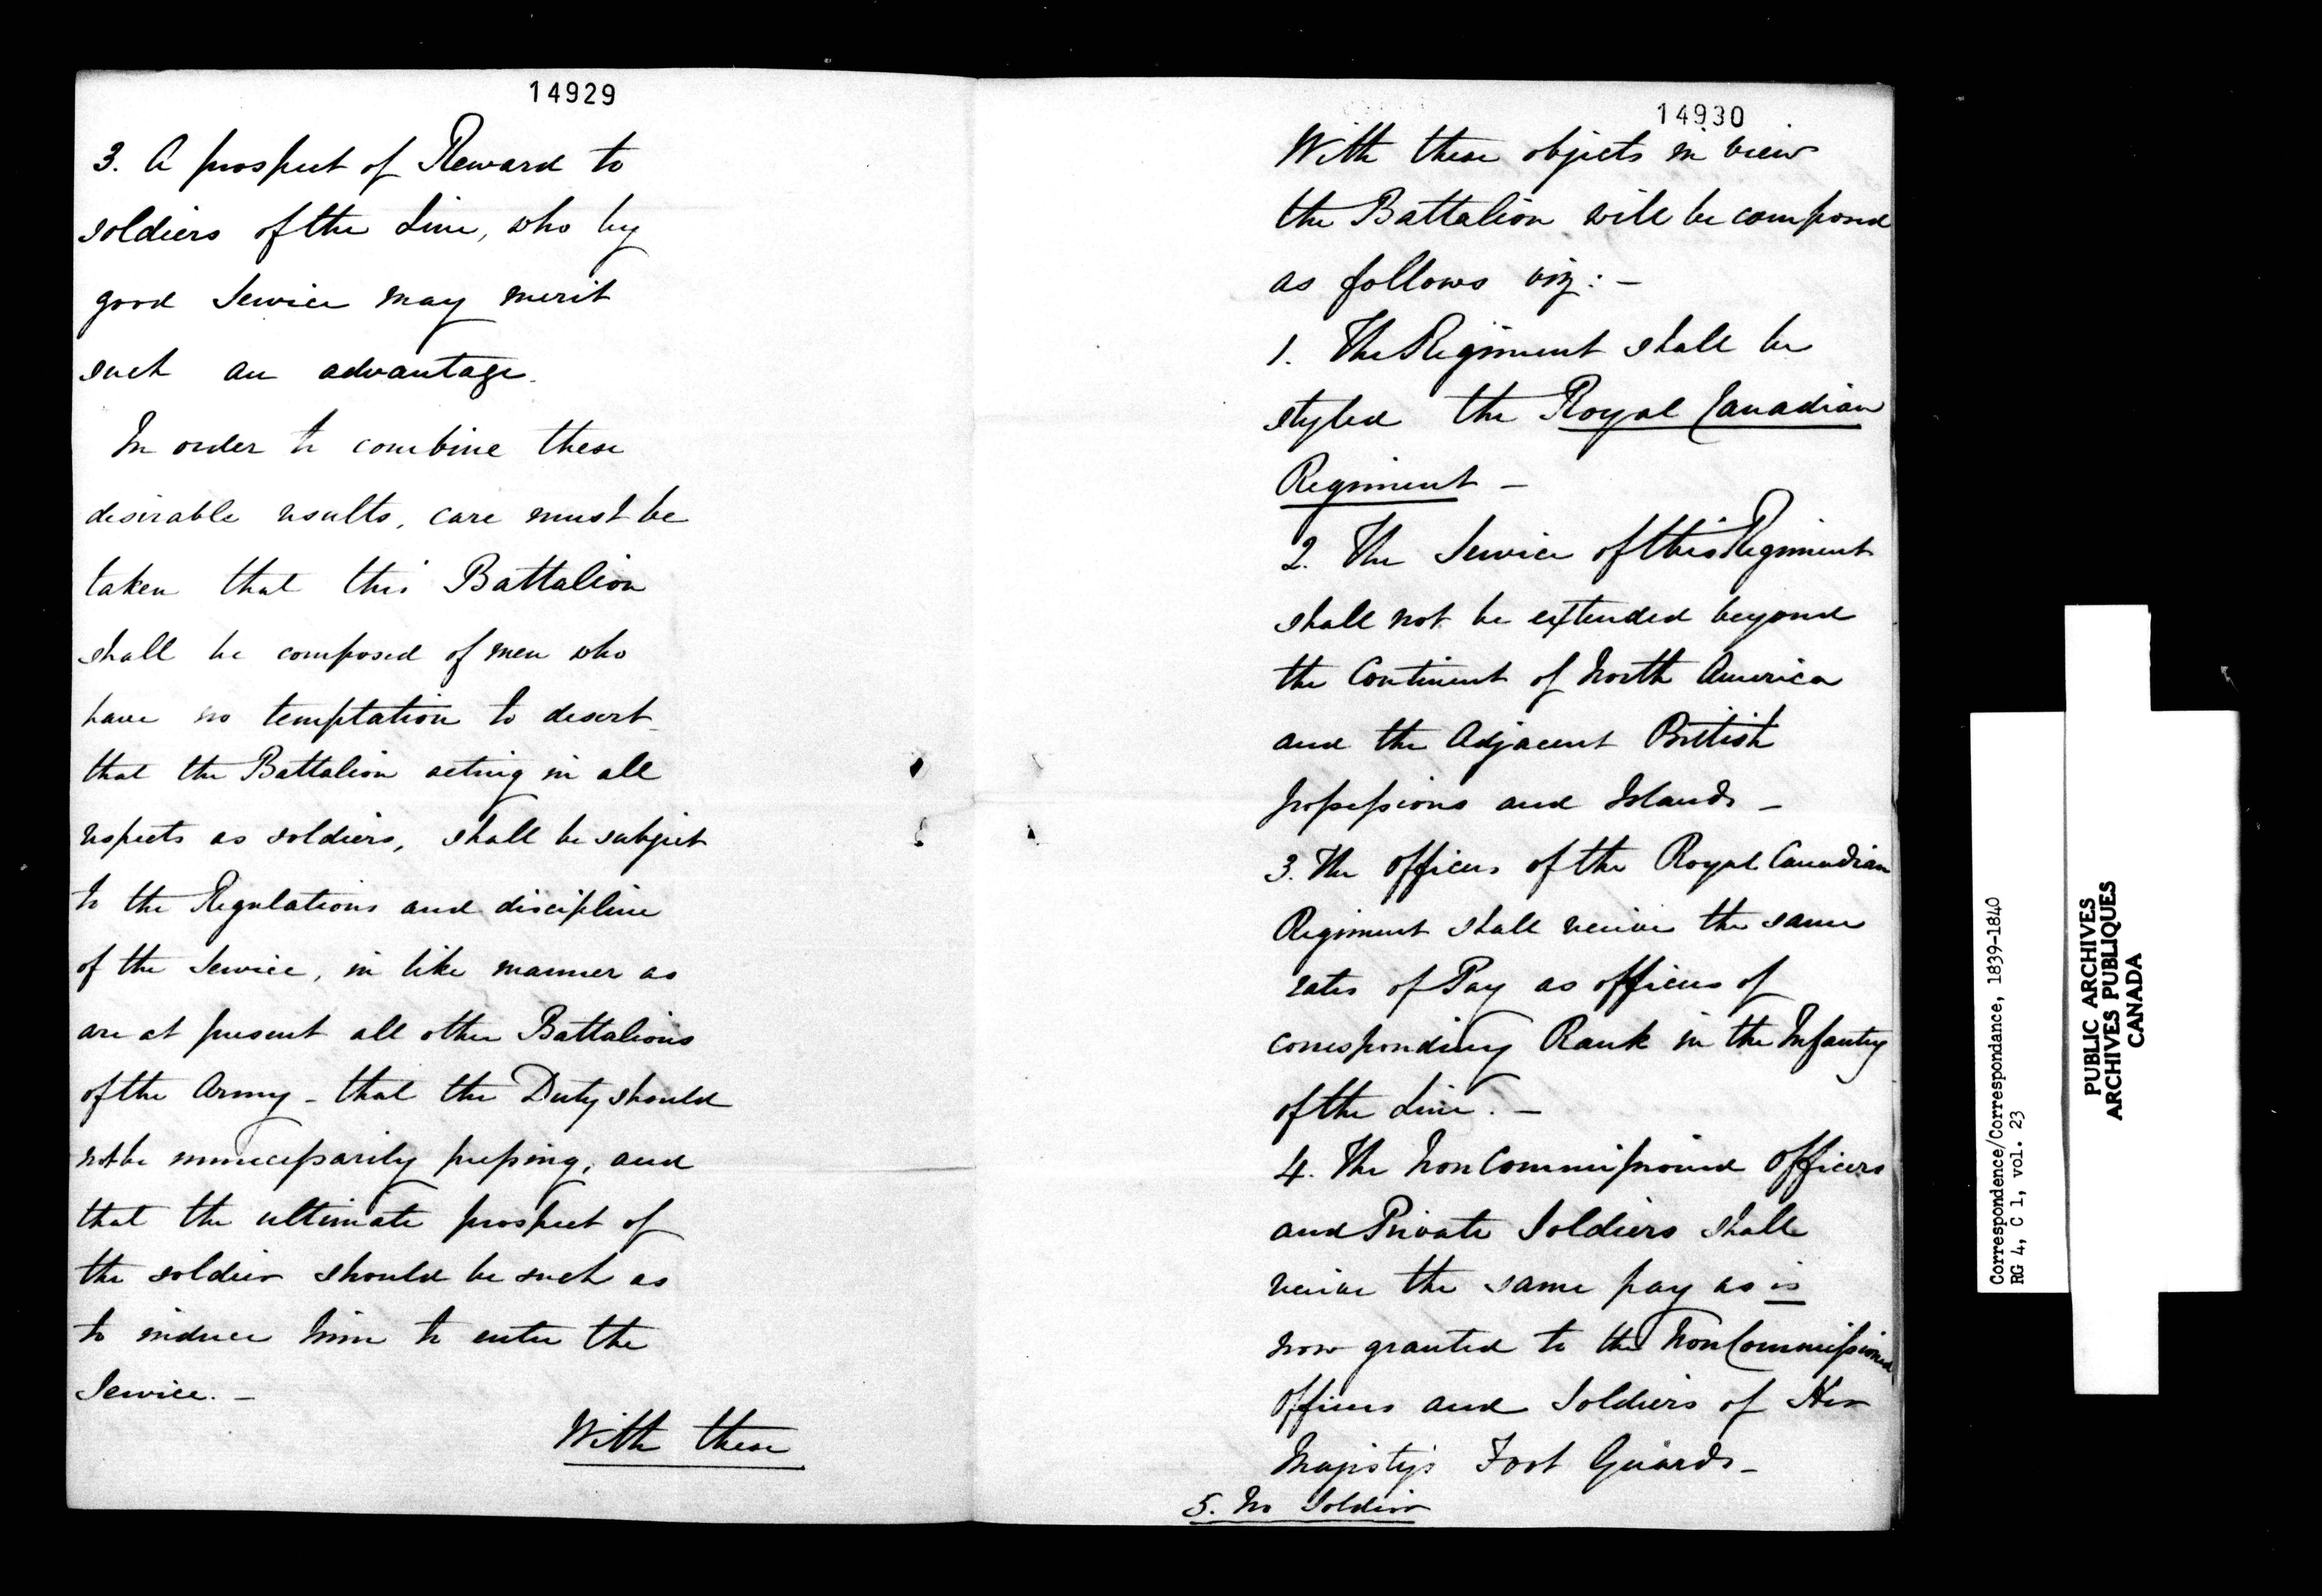 14929
3. A prospect of Reward to
soldiers of the Line, who by
good Service may merit
such an advantage.
In order to combine these
desirable results, care must be
taken that this Battalion
shall be composed of men who
have no temptation to desert
that the Battalion acting in all
respects as soldiers, shall be subject
to the Regulations and discipline
of the Service, in like manner as
are at present all other Battalions
of the Army - that the Duty should
not be unnecessarily pressing, and
that the ultimate prospect of
the soldier should be such as
to induce him to enter the
Service. -
With these
14930
With these objects in view
the Battalion will be composed
as follows viz: -
1. The Regiment shall be
styled the Royal Canadian
Regiment -
2. The Service of this Regiment
shall not be extended beyond
the Continent of North America
and the Adjacent British
possessions and Islands -
3. The officers of the Royal Canadian
Regiment shall receive the same
rates of Pay as officers of
corresponding Rank in the Infantry
of the Line. -
4. The Non Commissioned Officers
and Private Soldiers shall
receive the same pay as is
now granted to the Non Commissioned
Officers and Soldiers of Her
Majesty's Foot Guards -
5. No Soldier
Correspondence/Correspondance, 1839-1840
RG 4, C 1, vol. 23
PUBLIC ARCHIVES
ARCHIVES PUBLIQUES
CANADA